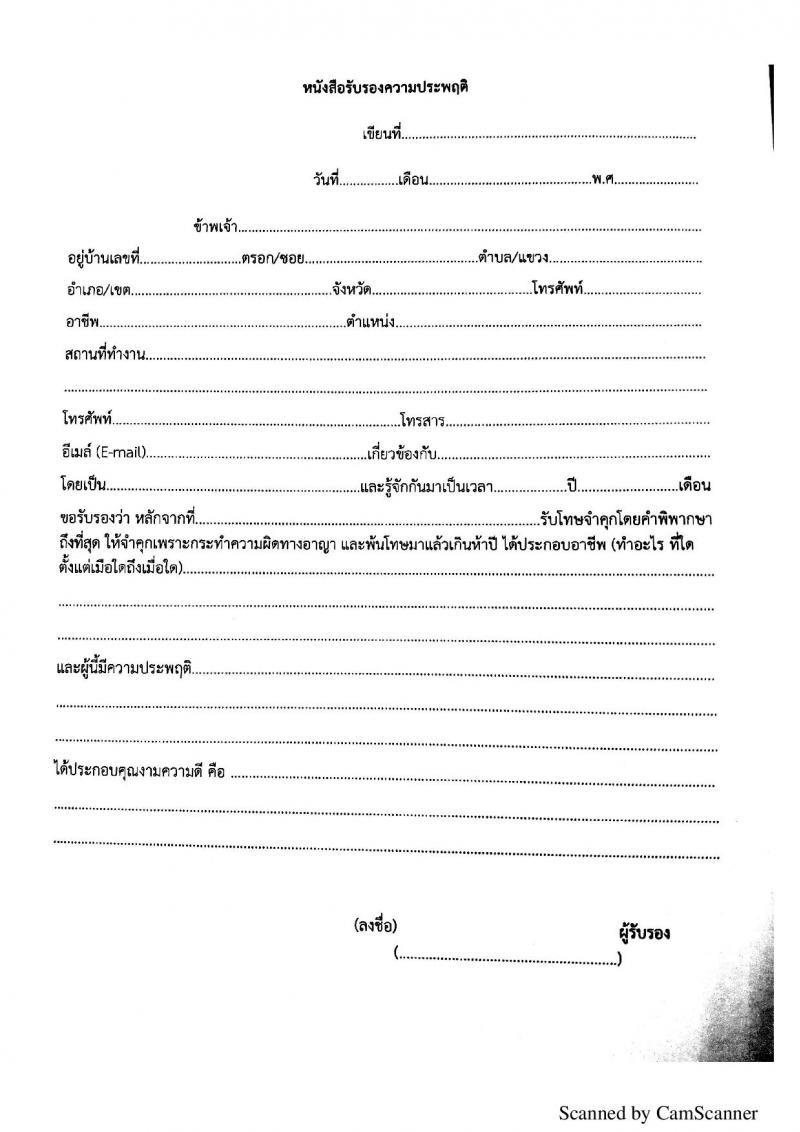 หนังสือรับรองความประพฤติ
เขียนที่..........................................................................
วันที่................เดือน..........................................พ.ศ......................
ข้าพเจ้า....................................................................................................................
อยู่บ้านเลขที่..........................ตรอก/ซอย............................................ตำบล/แขวง.......................................
อำเภอ/เขต...................................................จังหวัด.........................................โทรศัพท์..............................
อาชีพ...............................................................ตำแหน่ง..............................................................................
สถานที่ทำงาน..............................................................................................................................................
..................................................................................................................................................................
โทรศัพท์.........................................................................โทรสาร....................................................................
อีเมล์ (E-mail).........................................................เกี่ยวข้องกับ......................................................................
โดยเป็น................................................................และรู้จักกันมาเป็นเวลา...................ปี..........................เดือน
ขอรับรองว่า หลักจากที่........................................................................................รับโทษจำคุกโดยคำพิพากษา
ถึงที่สุด ให้จำคุกเพราะกระทำความผิดทางอาญา และพ้นโทษมาแล้วเกินห้าปี ได้ประกอบอาชีพ (ทำอะไร ที่ใด
ตั้งแต่เมือใดถึงเมื่อใด)......................................................................................................................................
..................................................................................................................................................................
..................................................................................................................................................................
และผู้นี้มีความประพฤติ....................................................................................................................................
..................................................................................................................................................................
..................................................................................................................................................................
ได้ประกอบคุณงามความดี คือ ..........................................................................................................................
..................................................................................................................................................................
..................................................................................................................................................................
(ลงชื่อ) ผู้รับรอง
(........................................................)
Scanned by CamScanner